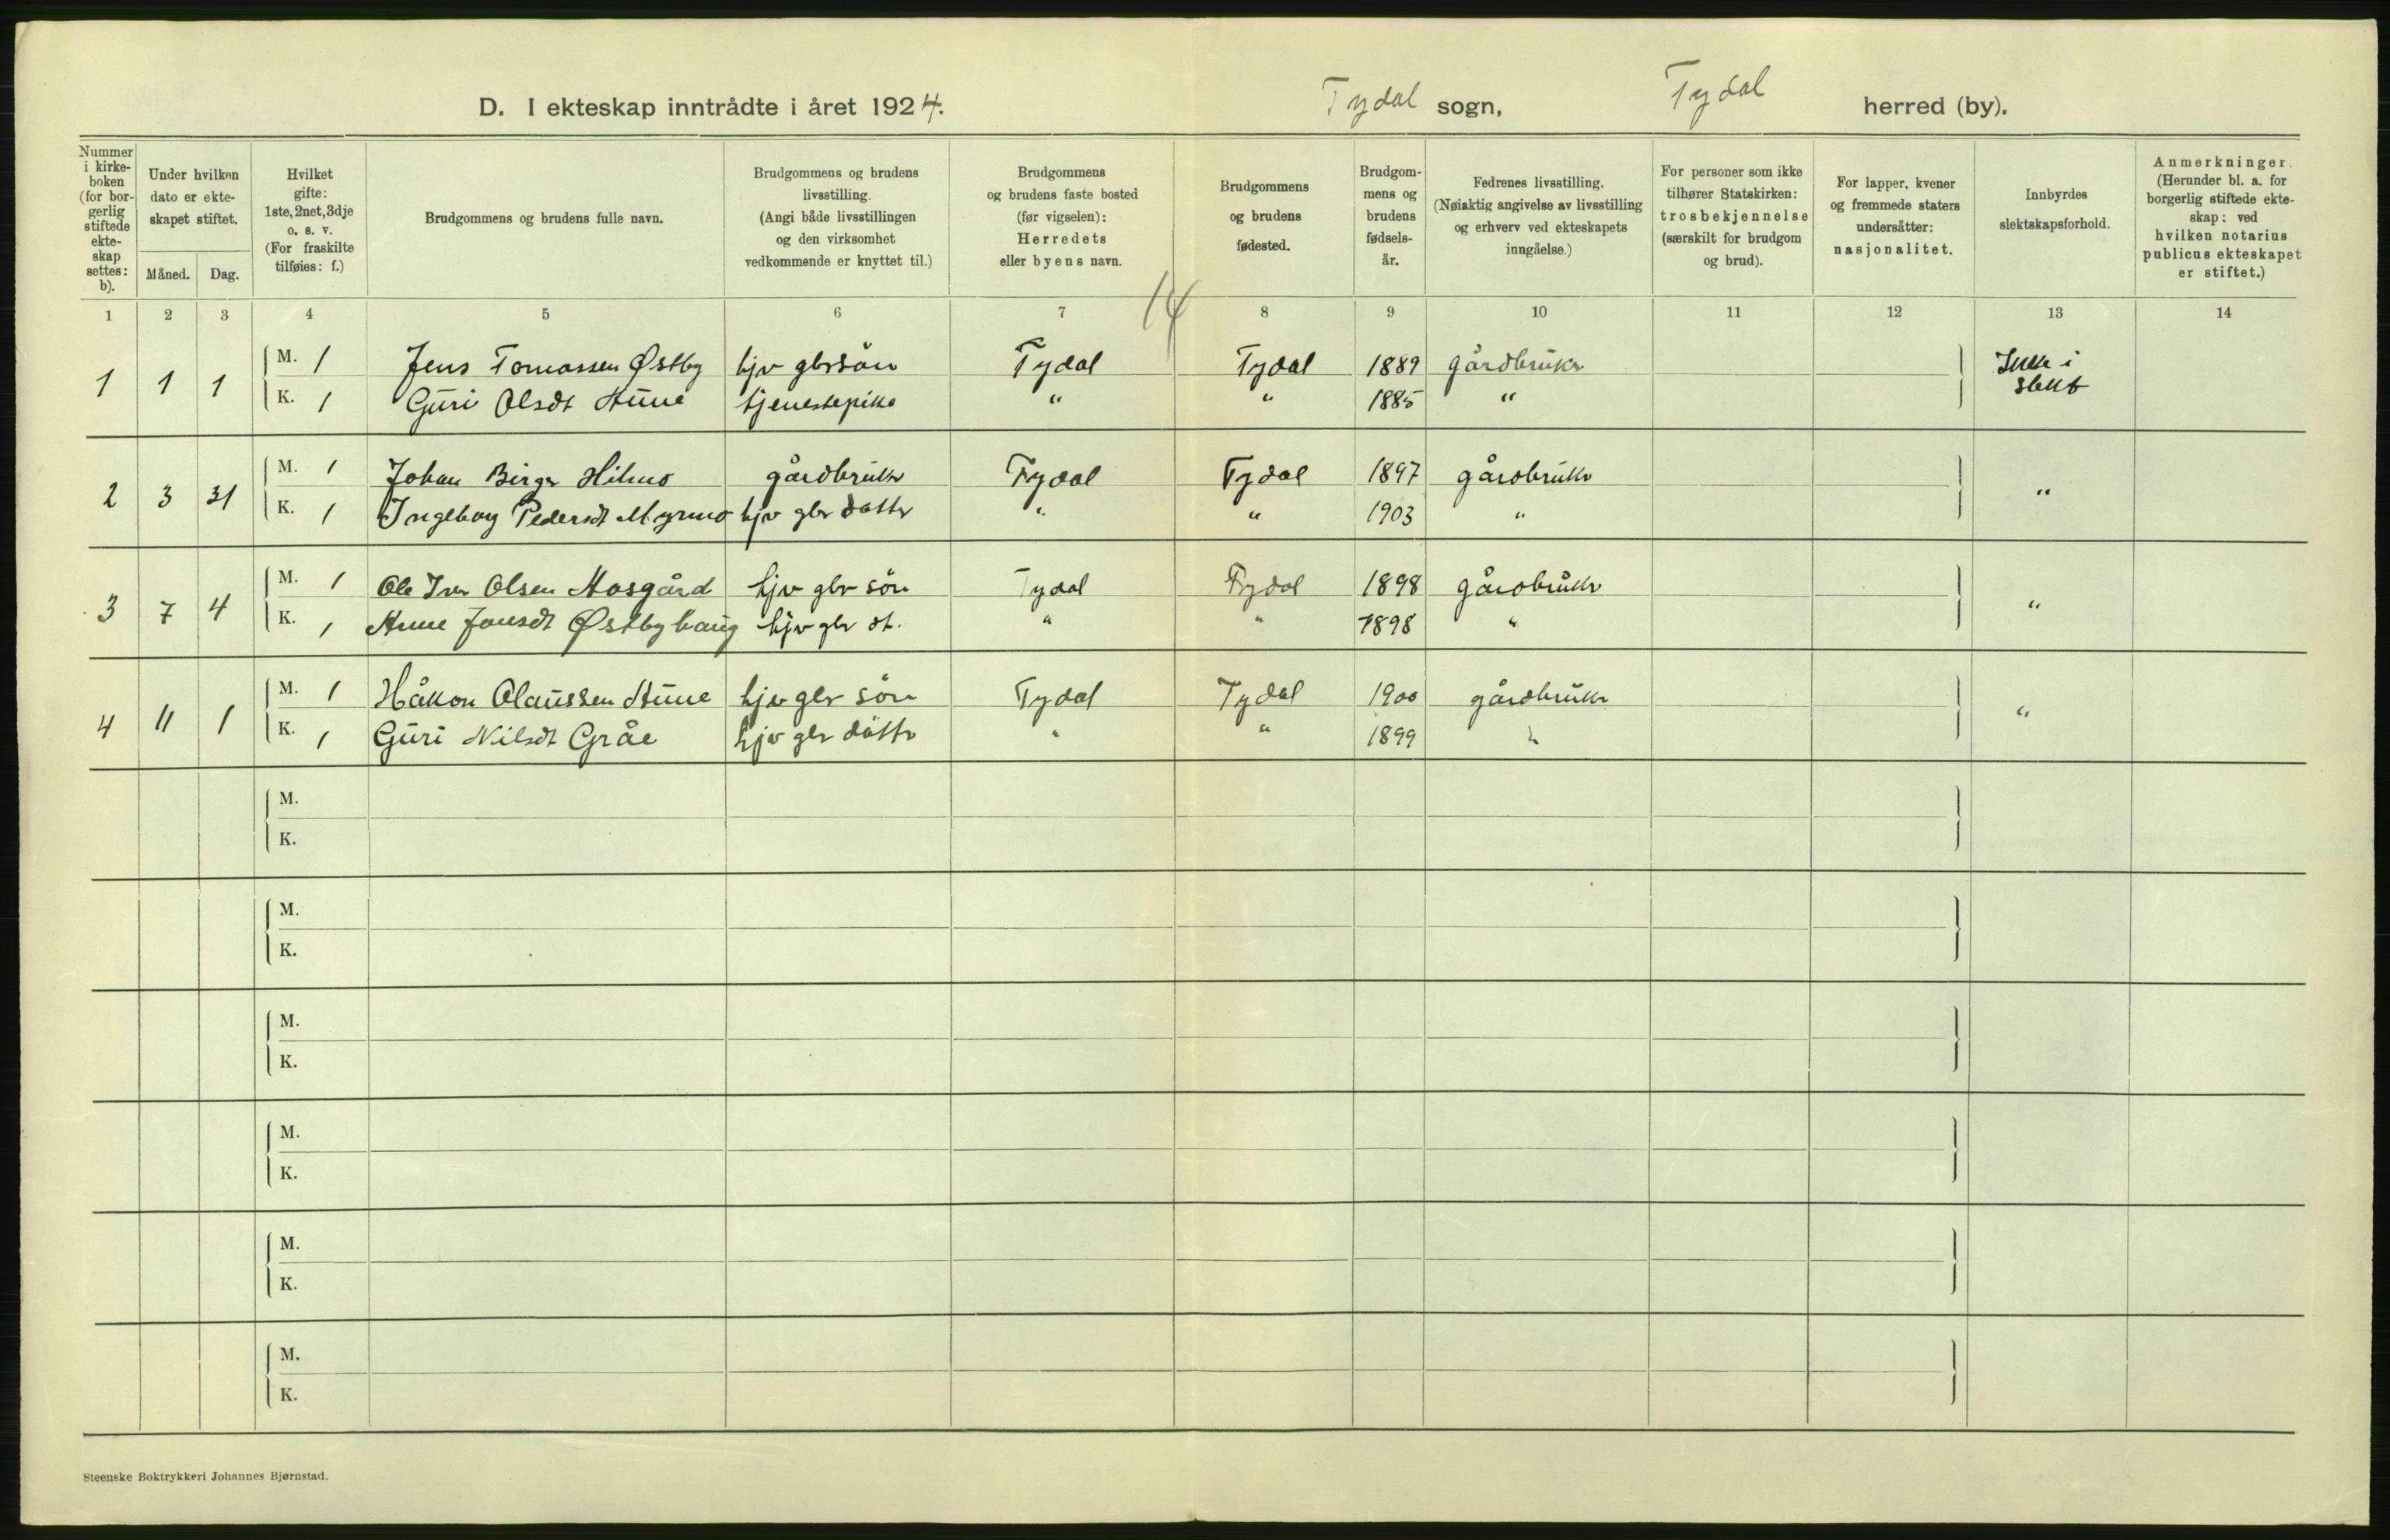 D. I ekteskap inntrådte i året 1924. Tydal sogn, Tydal herred (by).
Nummer i kirke-boken (for bor-gerlig stiftede ekte-skap settes: b).
Under hvilken dato er ekte-skapet stiftet.
Måned. Dag.
Hvilket gifte: 1ste, 2net, 3dje o. s. v. (For fraskilte tilføies: f.)
Brudgommens og brudens fulle navn.
Brudgommens og brudens livsstilling. (Angi både livsstillingen og den virksomhet vedkommende er knyttet til.)
Brudgommens og brudens faste bosted (før vigselen): Herredets eller byens navn.
Brudgommens og brudens fødested.
Brudgom-mens og brudens fødsels-år.
Fedrenes livsstilling. (Nøiaktig angivelse av livsstilling og erhverv ved ekteskapets inngåelse.)
For personer som ikke tilhører Statskirken: trosbekjennelse (særskilt for brudgom og brud).
For lapper, kvener og fremmede staters undersåtter: nasjonalitet.
Innbyrdes slektskapsforhold.
Anmerkninger. (Herunder bl. a. for borgerlig stiftede ekte-skap: ved hvilken notarius publicus ekteskapet er stiftet.)
14
1 2 3 4 5 6 7 8 9 10 11 12 13 14
1 1 1 M. 1 Jens Tomassen Østby hjv gbrsön Tydal Tydal 1889 gårdbruker Ikke i slekt
K. 1 Guri Olsdt Aune tjenestepike " " 1885 "
2 3 31 M. 1 Johan Birger Hilmo gårdbruker Tydal Tydal 1897 gårdbruker "
K. 1 Ingeborg Pedersdt Myrmo hjv gbr datter " " 1903 "
3 7 4 M. 1 Ole Iver Olsen Mosgård hjv gbr sön Tydal Tydal 1898 gårdbruker "
K. 1 Anne Jonsdt Østbyhaug hjv gbr dt. " " 1898 "
4 11 1 M. 1 Håkon Olaussen Aune hjv gbr sön Tydal Tydal 1900 gårdbruker "
K. 1 Guri Nilsdt Gråe hjv gbr datter " " 1899 "
M.
K.
M.
K.
M.
K.
M.
K.
M.
K.
M.
K.
Steenske Boktrykkeri Johannes Bjørnstad.